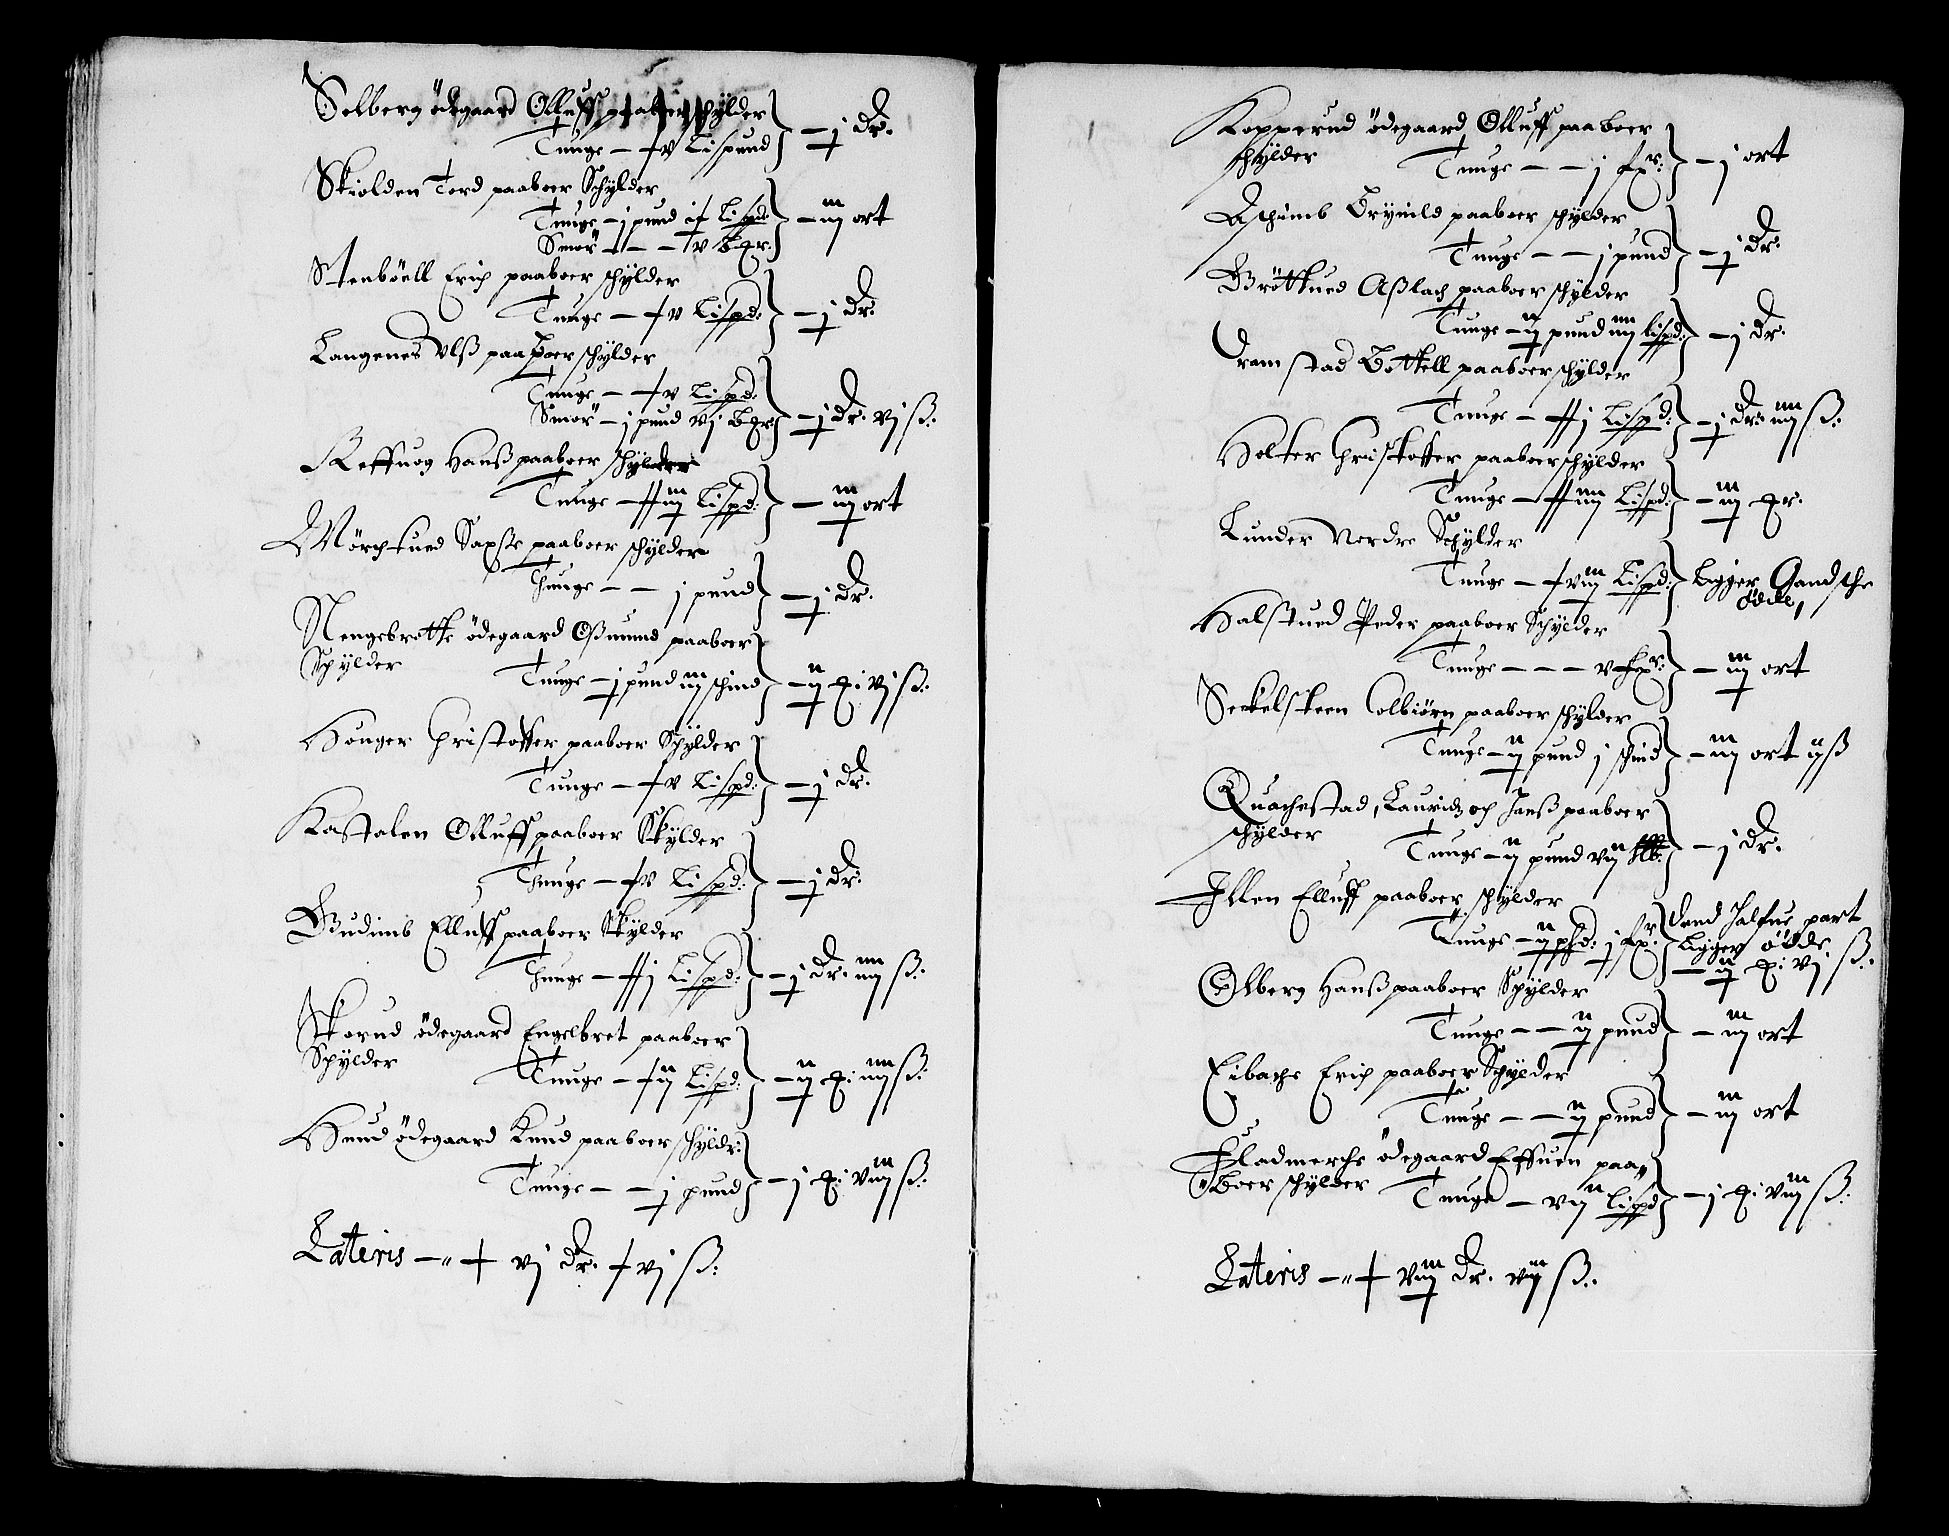 Solberg ödegaard Olluff paaboer schÿlder
Tunge — ɉv Lispund } — ɉ dr.
Skiolden Tord paaboer Schÿlder
Tunge — j pund iɉ Lispd: } — iij ort
Smör — — ɉv Bgr.
Stenböell Erich paaboer schÿlder
Tunge — ɉv Lispd: } — ɉ dr.
Langenes Vlß paaboer schÿlder
Tunge — ɉv Lispd:
Smör — j pund vj Bgr } — ɉ dr. vj ß:
Reffuog Hanß paaboer schÿlder
Tunge — ɉɉiij Lispd: } — iij ort
Mörchtued Saxße paaboer schÿlder
Thunge — — j pund } — ɉ dr.
Nengebrotte ödegaard Oßmund paaboer
Schÿlder Tunge — j pund iij schind } — ij ꝑ: vj ß:
Hönger Christoffer paaboer Schÿlder
Tunge — ɉv Lispd: } — ɉ dr.
Kastalen Olluff paaboer Skÿlder
Thunge — ɉv Lispd: } — ɉ dr.
Gudimb Elluff paaboer Skÿlder
Thunge — ɉɉj Lispd: } — j dr. iiij ß:
Skorud ödegaard Engelbret paaboer
Schÿlder Tunge — ɉij Lispd: } — ij ꝑ: iiij ß:
Hund ödegaard Knud paaboer schÿldr:
Tunge — — j pund } — j ꝑ: viij ß:
Lateris — vj dr. ɉvj ß:
Kopperud ödegaard Olluff paaboer
schÿlder Tunge — — j fxr: } — j ort
Aschimb Brÿnild paaboer schÿlder
Tunge — — j pund } — j dr:
Bröttued Aßlach paaboer schÿlder
Tunge — ij pund iiij lispd: } — j dr:
Dramstad Bottell paaboer schÿlder
Tunge — ɉɉj Lispd: } — j dr: iiij ß:
Holter Christoffer paaboer schÿlder
Tunge — ɉɉiiij Lispd: } — iij ꝑr.
Lunder Nordre Schÿlder
Tunge — ɉviij Lispd: } Ligger Gandsche
ödde,
Halstued Peder paaboer Schÿlder
Tunge — — — v fxr: } — iij ort
Seckelsteen Colbiörn paaboer schÿlder
Tunge — ij pund j schind } — iij ort ij ß
Quachestad, Lauridz och Hanß paaboer
schÿlder Tunge — ij pund vij Mlb: } — j dr.
Illen Elluff paaboer schÿlder
Tunge — ij phd: j fxr: } dend halfue part
ligger ödde
— ij ꝑ: vj ß:
Olberg Hanß paaboer Schÿlder
Tunge — — ij pund } — iij ort
Eibache Erich paaboer Schÿlder
Tunge — — ij pund } — iij ort
Fladmerche ödegaard Effuen paa„
„Boer schÿlder Tunge — vij lispd } — j ꝑ: viij ß:
Lateris — viij dr. viij ß: